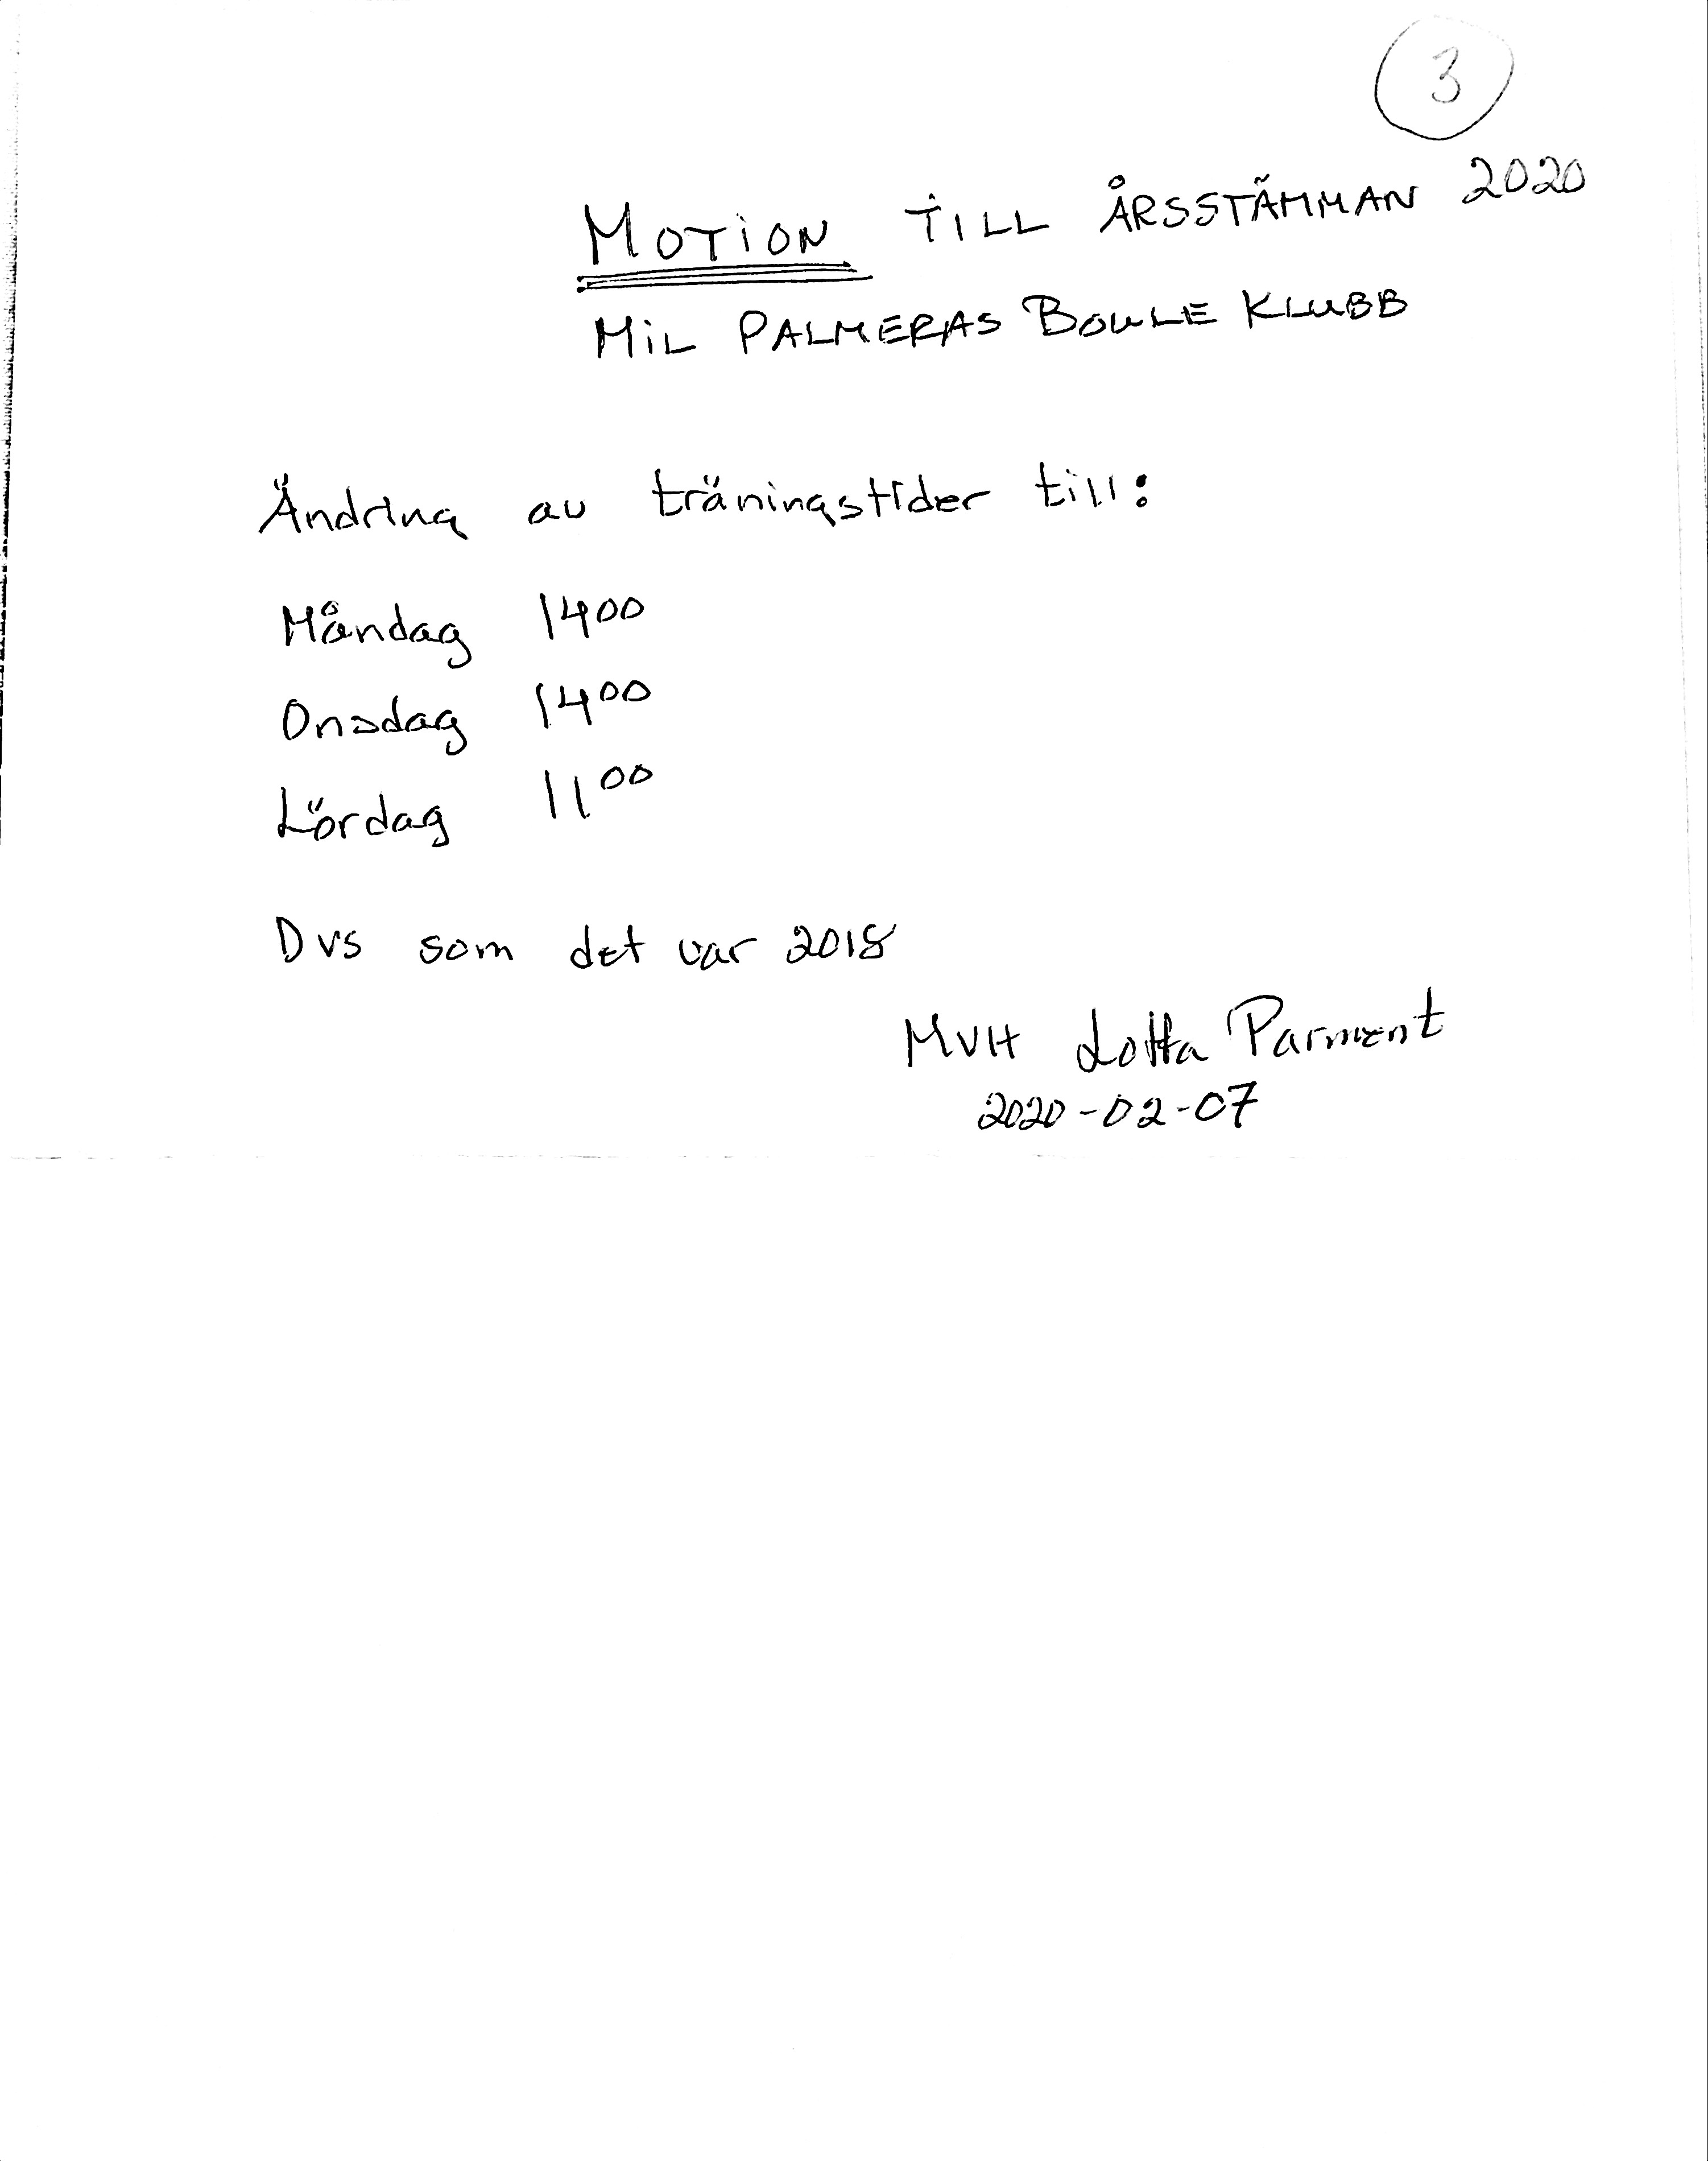 3
MOTION TILL ÅRSSTÄMMAN 2020
MIL PALMERAS BOULE KLUBB
Ändring av träningstider till:
Måndag 14 00
Onsdag 14 00
Lördag 11 00
Dvs som det var 2018
MVH Lotta Parment
2020-02-07